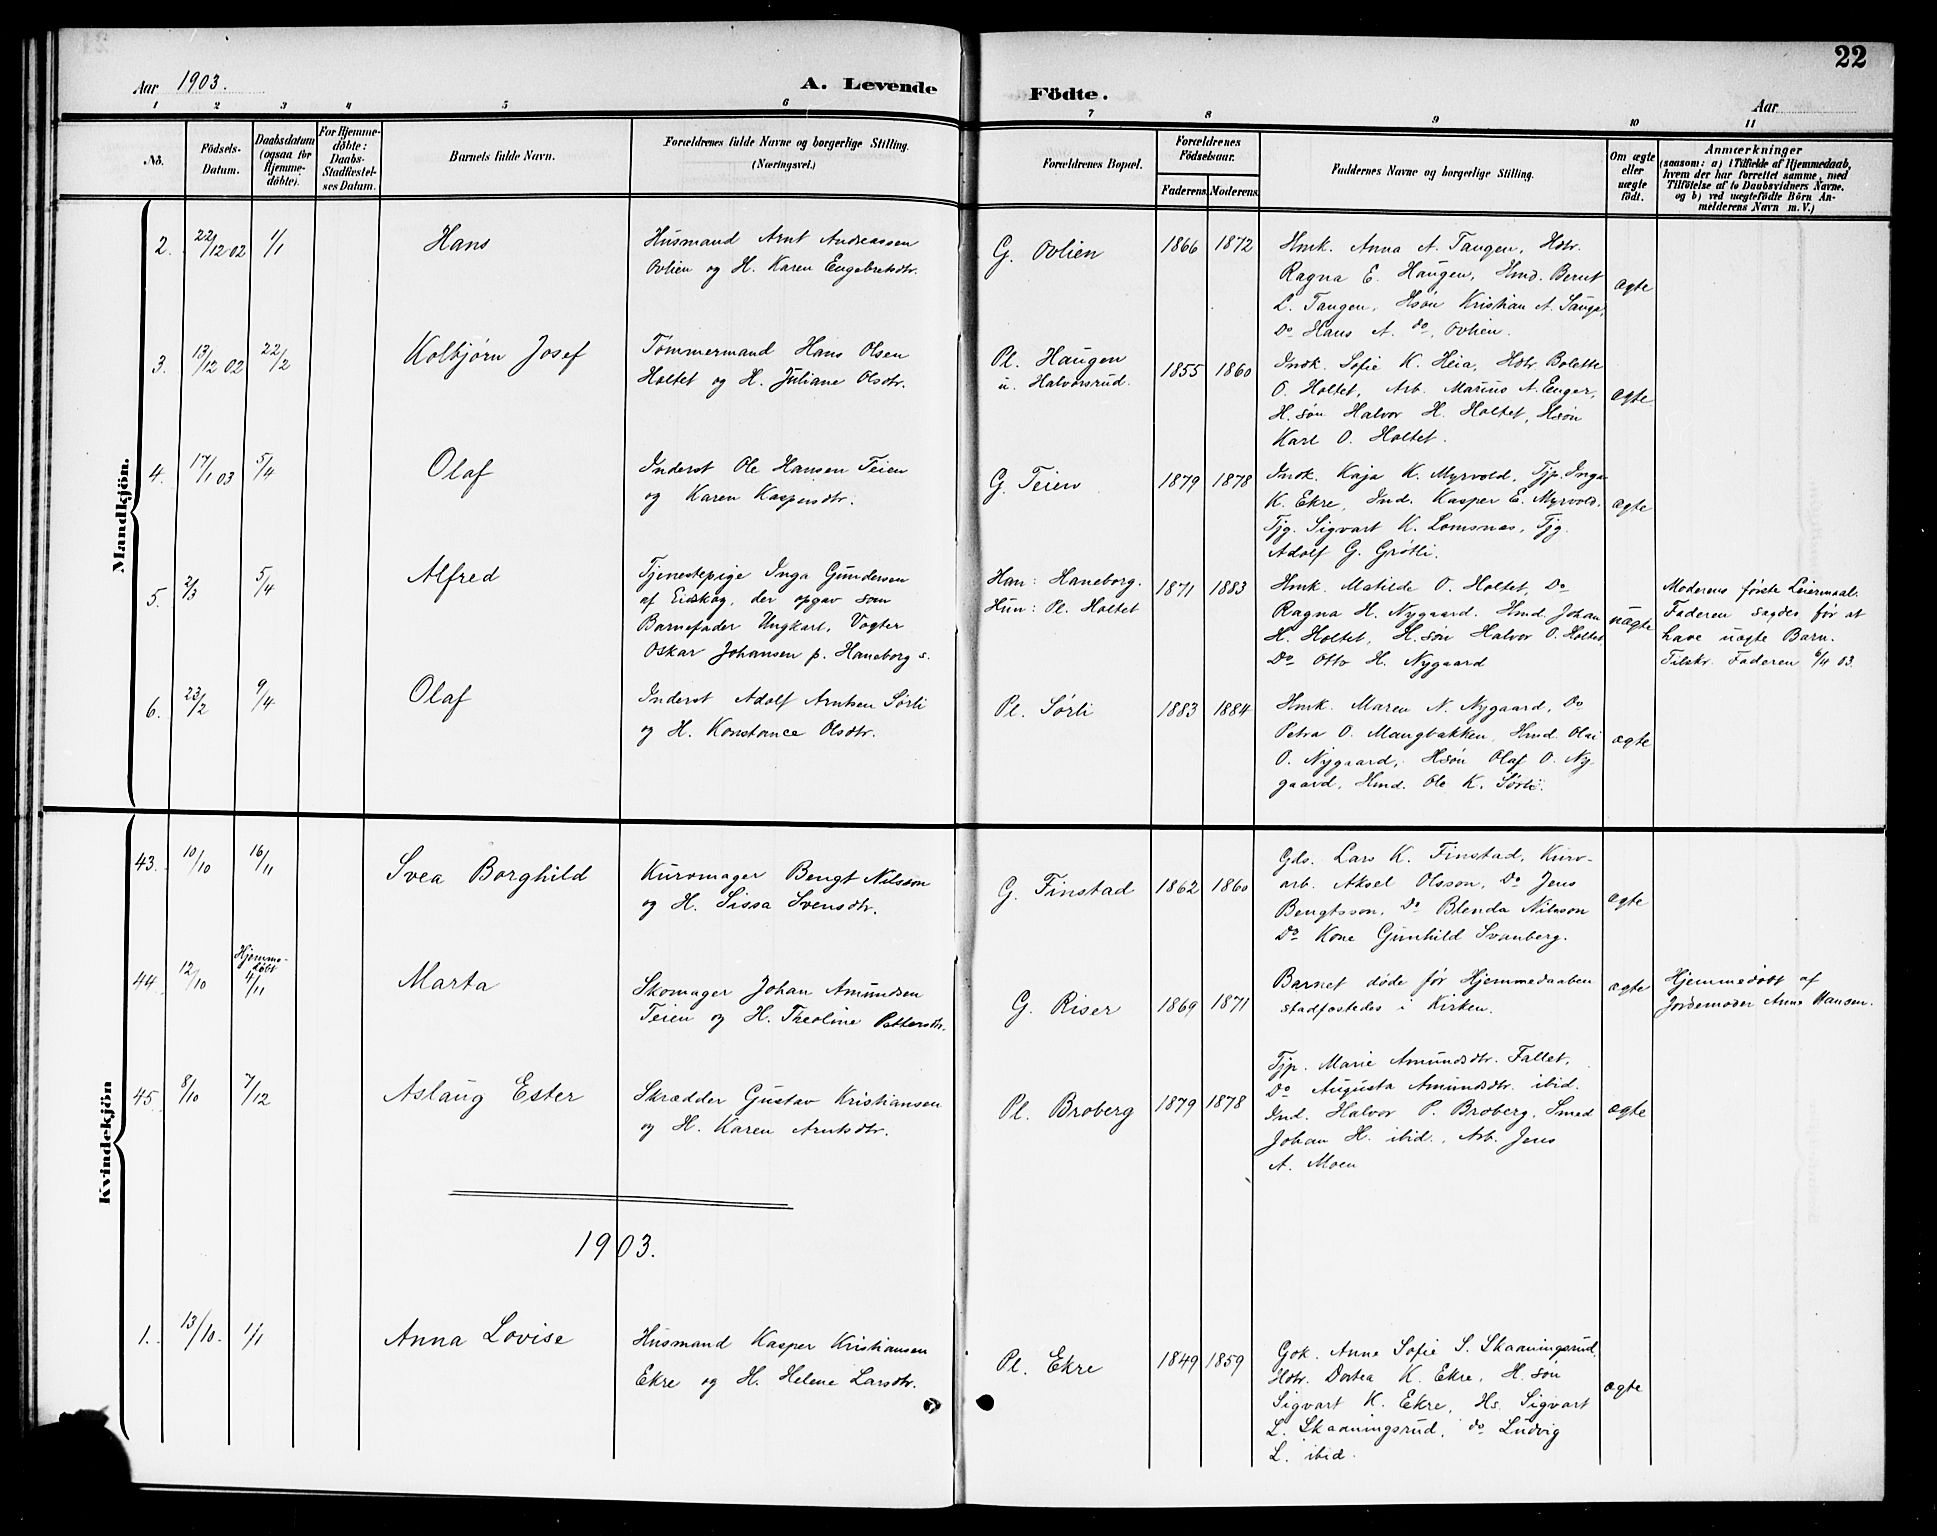 22
Aar 1903.
A. Levende Födte.
Aar
1 2 3 4 5 6 7 8 9 10 11
No.
Födsels-Datum.
Daabsdatum (ogsaa for Hjemmedöbte).
For Hjemmedöbte: Daabs-Stadfæstelses Datum.
Barnets fulde Navn.
Forældrenes fulde Navne og borgerlige Stilling. (Næringsvei.)
Forældrenes Bopæl.
Forældrenes Födselsaar.
Faderens. Moderens.
Faddernes Navne og borgerlige Stilling.
Om ægte eller uægte födt.
Anmærkninger
(saasom: a) i Tilfælde af Hjemmedaab,
hvem der har forrettet samme, med
Tilföielse af to Daabsvidners Navne.
og b) ved uægtefödte Börn An-
melderens Navn m. V.)
Mandkjön.
2. 22/12 02 1/1 Hans
Husmand Arnt Andreassen
Ovlien og H. Karen Engebretsdtr.
G. Ovlien 1866 1872
Hmk. Anna A. Tangen, Hdtr.
Ragna E. Haugen, Hmd. Bernt
L. Tangen, Hsøn Kristian A.
Do Hans A. do, Ovlien.
ægte
3. 13/12 02 22/2 Kolbjørn Josef
Tømmermand Hans Olsen
Holtet og H. Juliane Olsdtr.
Pl. Haugen
u. Halvorsrud. 1855 1860
Indk. Sofie K. Heia, Hdtr Bolette
O. Holtet, Arb. Marius A. Enger,
H. søn Halvor H. Holtet, Hsøn
Karl O. Holtet.
ægte
4. 17/1 03 5/4 Olaf
Inderst Ole Hansen Teien
og Karen Kaspersdtr.
G. Teien 1879 1878
Indk. Kaja K. Myrvold, Tjp. Inga
K. Ekre, Ind. Kasper E. Myrvold,
Tjg. Sigvart K. Lomsnes, Tjg.
Adolf G. Grøtli.
ægte
5. 2/3 5/4 Alfred
Tjenestepige Inga Gundersen
af Eidskog, der opgav som
Barnefader Ungkarl, Vogter
Oskar Johansen p. Haneborg s.
Han: Haneborg.
Hun: Pl. Holtet 1871 1883
Hmk. Matilde O. Holtet, Do
Ragna H. Nygaard. Hmd. Johan
H. Holtet, H. søn Halvor O. Holtet
Do Otto H. Nygaard
uægte
Moderens første Leiermaal.
Faderen sagdes før at
have uægte Barn.
Tilskr. Faderen 6/4 03.
6. 23/2 9/4 Olaf
Inderst Adolf Arntsen Sørli
og H. Konstance Olsdtr.
Pl. Sørli 1883 1884
Hmk. Maren N. Nygaard, Do
Petra O. Mangbakken, Hmd. Olai
O. Nygaard, Hsøn Olaf O. Ny-
gaard, Hmd. Ole K. Sørli.
ægte
Kvindekjön
43. 10/10 16/11 Svea Borghild
Kurvmager Bengt Nilsson
og H. Sissa Svensdtr.
G. Finstad 1862 1860
Gds. Lars K. Finstad, Kurv-
arb. Aksel Olsson, Do Jens
Bengtsson, Do Blenda Nilsson
Do Kone Gunhild Svanberg.
ægte
44. 12/10 Hjemme-
døbt
4/11 Marta
Skomager Johan Amundsen
Teien og H. Theoline Pettersdtr.
G. Riser 1869 1871
Barnet døde før Hjemmedaaben
stadfæstedes i Kirken.
ægte
Hjemmedøbt af
Jordemoder Anne Hansen.
45. 8/10 7/12 Aslaug Ester
Skrædder Gustav Kristiansen
og H. Karen Arntsdtr.
Pl. Broberg 1879 1878
Tjp. Marie Amundsdtr. Fallet,
Do Augusta Amundsdtr. ibid.
Ind. Halvor P. Broberg, Smed
Johan H. ibid., Arb. Jens
A. Moen
ægte
1903.
1. 13/10 1/1 Anna Lovise
Husmand Kasper Kristiansen
Ekre og H. Helene Larsdtr.
Pl. Ekre 1849 1859
Gdk. Anne Sofie S. Skaaningsrud,
Hdtr. Dortea K. Ekre, H. søn
Sigvart K. Ekre, Hs. Sigvart
L. Skaaningsrud, do Ludvig
L. ibid.
ægte